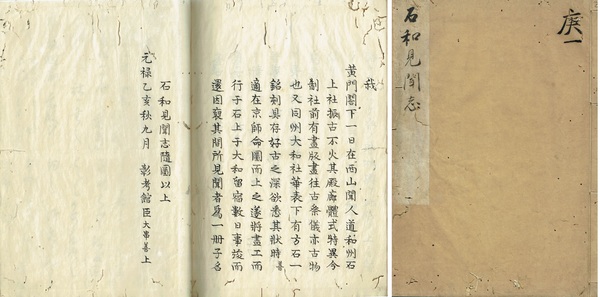 庚一
石和見聞志
我
黄門閣下一日在西山聞人道和州石
上社振古不火其殿廊體式特異今
社前有畫版畫往古祭儀亦古物
也又同州大和社華表下有方石一
銘刻具存好古之深欲悉其狀時善
適在京師命圖而上之遂將畫工而
行于石上于大和留宿數日事竣而
還因裒其間所見聞者爲一册子名
石和見聞志隨圖以上
元禄乙亥秋九月 彰考館臣大串善上